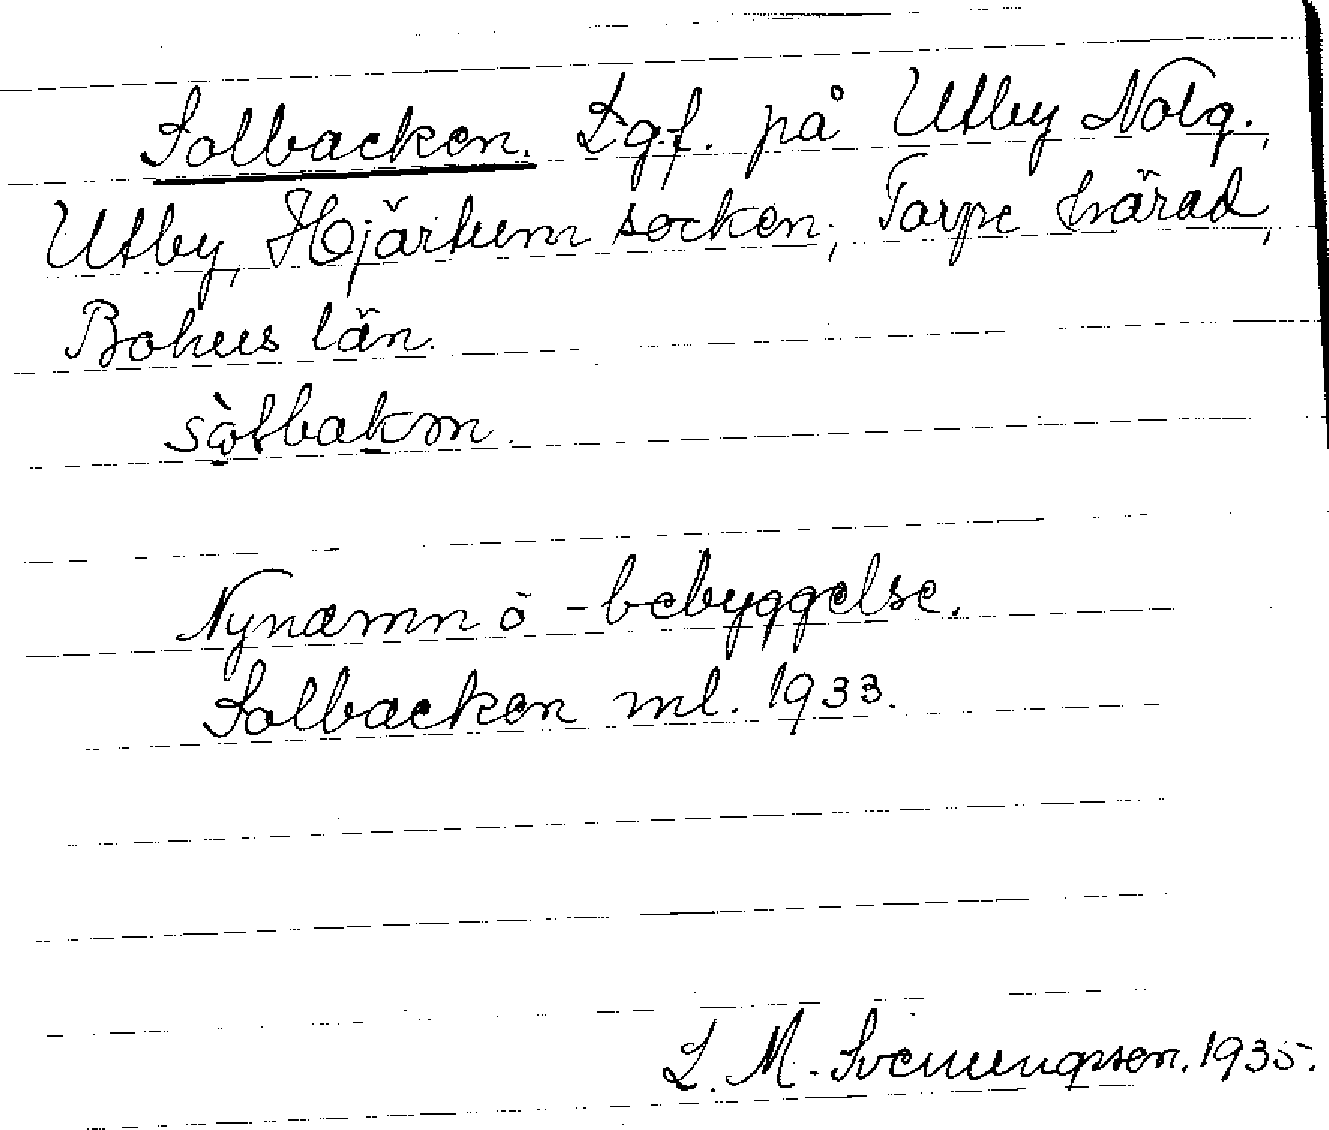 Solbacken. Lgf. på Utby Nolg.,
Utby, Hjärtum socken, Torpe härad,
Bohus län.
sòlbakən.
Nynamn o -bebyggelse.
Solbacken ml. 1933.
L. M. Svenungsson. 1935.